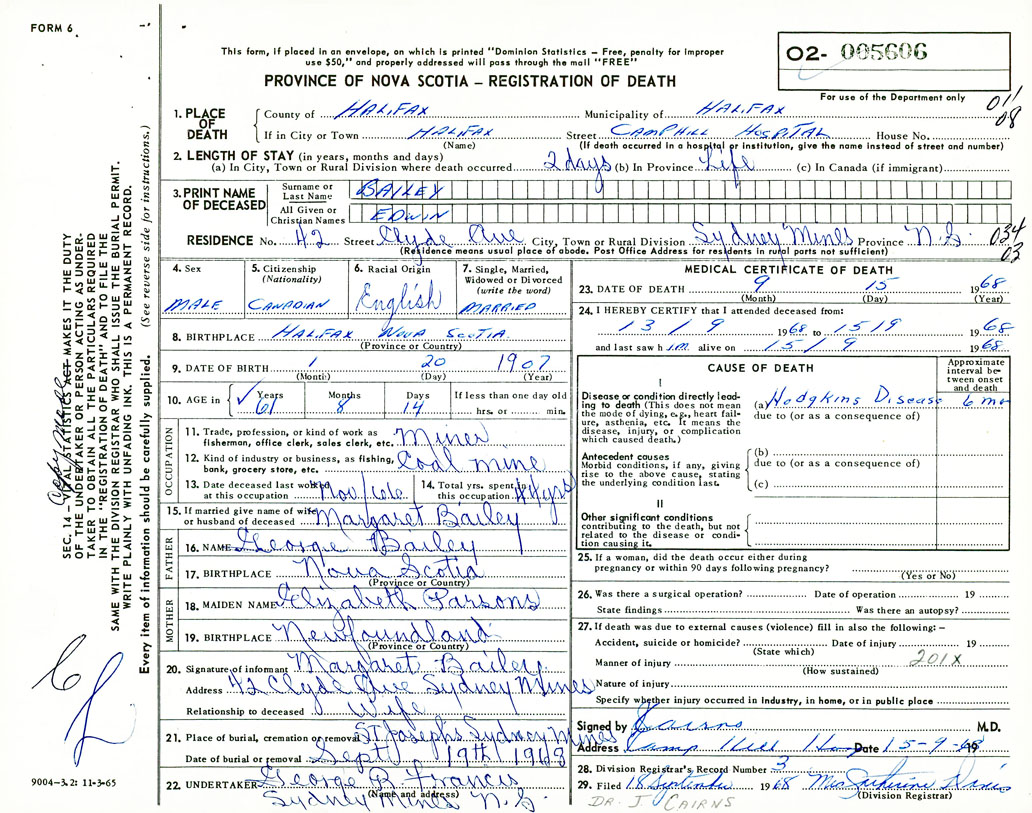 FORM 6
This form, if placed in an envelope, on which is printed "Dominion Statistics – Free, penalty for improper
use $50," and properly addressed will pass through the mail "FREE"
O2- 005606
PROVINCE OF NOVA SCOTIA – REGISTRATION OF DEATH
For use of the Department only
011
08
1. PLACE OF DEATH
County of HALIFAX Municipality of HALIFAX
If in City or Town HALIFAX Street CAMPHILL HOSPITAL House No.
(Name) (If death occurred in a hospital or institution, give the name instead of street and number)
2. LENGTH OF STAY (in years, months and days)
(a) In City, Town or Rural Division where death occurred 2 days (b) In Province Life (c) In Canada (if immigrant)
3. PRINT NAME OF DECEASED
Surname or Last Name BAILEY
All Given or Christian Names EDWIN
RESIDENCE No. 42 Street Clyde Ave City, Town or Rural Division Sydney Mines Province N.S.
034
03
(Residence means usual place of abode. Post Office Address for residents in rural parts not sufficient)
4. Sex
MALE
5. Citizenship
(Nationality)
CANADIAN
6. Racial Origin
English
7. Single, Married,
Widowed or Divorced
(write the word)
MARRIED
8. BIRTHPLACE HALIFAX NOVA SCOTIA
(Province or Country)
9. DATE OF BIRTH 1 20 1907
(Month) (Day) (Year)
10. AGE in Years Months Days If less than one day old
✓ 61 8 14 hrs. or min.
OCCUPATION
11. Trade, profession, or kind of work as
fisherman, office clerk, sales clerk, etc. Miner
12. Kind of industry or business, as fishing,
bank, grocery store, etc. Coal mine
13. Date deceased last worked
at this occupation Nov/66
14. Total yrs. spent in
this occupation 44 yrs
15. If married give name of wife
or husband of deceased Margaret Bailey
FATHER
16. NAME George Bailey
17. BIRTHPLACE Nova Scotia
(Province or Country)
MOTHER
18. MAIDEN NAME Elizabeth Parsons
19. BIRTHPLACE Newfoundland
(Province or Country)
20. Signature of informant Margaret Bailey
Address 42 Clyde Ave Sydney Mines
Relationship to deceased Wife
21. Place of burial, cremation or removal St Josephs Sydney Mines
Date of burial or removal Sept 19th 1968
22. UNDERTAKER George B Francis
(Name and address)
Sydney Mines N.S.
MEDICAL CERTIFICATE OF DEATH
23. DATE OF DEATH 9 15 1968
(Month) (Day) (Year)
24. I HEREBY CERTIFY that I attended deceased from:
13/9 1968 to 15/9 1968
and last saw him alive on 15/9 1968
CAUSE OF DEATH
Approximate
interval be-
tween onset
and death
I
Disease or condition directly lead-
ing to death (This does not mean
the mode of dying, e.g., heart fail-
ure, asthenia, etc. It means the
disease, injury, or complication
which caused death.)
(a) Hodgkins Disease 6 mo
due to (or as a consequence of)
Antecedent causes
Morbid conditions, if any, giving
rise to the above cause, stating
the underlying condition last.
(b)
due to (or as a consequence of)
(c)
II
Other significant conditions
contributing to the death, but not
related to the disease or condi-
tion causing it.
25. If a woman, did the death occur either during
pregnancy or within 90 days following pregnancy?
(Yes or No)
26. Was there a surgical operation? Date of operation 19
State findings Was there an autopsy?
27. If death was due to external causes (violence) fill in also the following: –
Accident, suicide or homicide? Date of injury 19
(State which)
201X
Manner of injury
(How sustained)
Nature of injury
Specify whether injury occurred in Industry, in home, or in public place
Signed by J Cairns M.D.
Address Camp Hill Date 15-9-68 19
28. Division Registrar's Record Number 3
29. Filed 18 September 1968
(Division Registrar)
DR. J CAIRNS
SEC. 14 – VITAL STATISTICS ACT MAKES IT THE DUTY
OF THE UNDERTAKER OR PERSON ACTING AS UNDER-
TAKER TO OBTAIN ALL THE PARTICULARS REQUIRED
IN THE "REGISTRATION OF DEATH" AND TO FILE THE
SAME WITH THE DIVISION REGISTRAR WHO SHALL ISSUE THE BURIAL PERMIT.
WRITE PLAINLY WITH UNFADING INK. THIS IS A PERMANENT RECORD.
Every item of information should be carefully supplied. (See reverse side for instructions.)
9004–3.2: 11-3-65